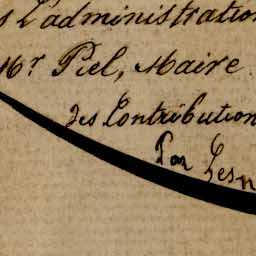 s L'administration
Mr Piel, Maire
des Contribution
Par Lesn